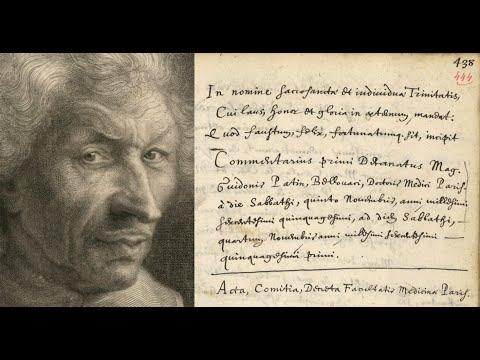 438
444
In nomine sacrosanctæ et individuæ Trinitatis,
Cui laus, honor et gloria in æternum, maneat:
Quod faustum, felix, fortunatumq; sit, incipit
Commentarius primi Decanatus Mag.
Guidonis Patin, Bellovaci, Doctoris Medici Paris.
à die Sabbathi, quinto Novembris, anni millesimi
sexcentesimi quinquagesimi, ad diem Sabbathi,
quartum Novembris anni millesimi sexcentesimi
quinquagesimi primi.
Acta, Comitia, Decreta Facultatis Medicinæ Paris.